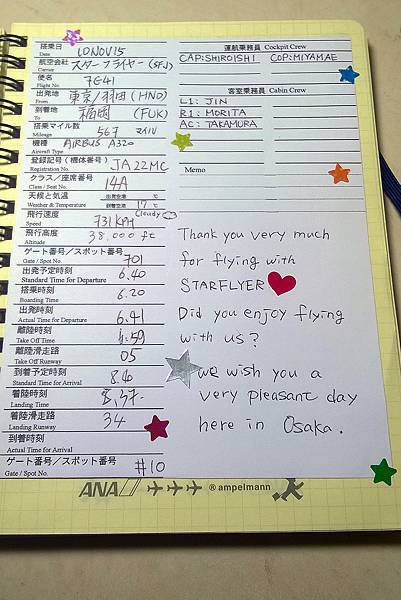 搭乗日 Date 10NOV15
航空会社 Carrier スターフライヤー (SFJ)
便名 Flight No. 7G41
出発地 From 東京/羽田 (HND)
到着地 To 福岡 (FUK)
搭乗マイル数 Mileage 567 マイル
機種 Aircraft Type AIRBUS A320
登録記号(機体番号) Registration No. JA22MC
クラス/座席番号 Class / Seat No. 14A
天候と気温 Weather & Temperature 出発空港 ℃ 到着空港 17 ℃ Cloudy
飛行速度 Speed 731 KPH
飛行高度 Altitude 38,000 ft
ゲート番号/スポット番号 Gate / Spot No. 701
出発予定時刻 Standard Time for Departure 6.40
搭乗時刻 Boarding Time 6.20
出発時刻 Actual Time for Departure 6.41
離陸時刻 Take Off Time :59
離陸滑走路 Take Off Runway 05
到着予定時刻 Standard Time for Arrival 8.40
着陸時刻 Landing Time 8,37
着陸滑走路 Landing Runway 34
到着時刻 Actual Time for Arrival
ゲート番号/スポット番号 Gate / Spot No. #10
運航乗務員 Cockpit Crew
CAP:SHIROISHI COP:MIYAMAE
客室乗務員 Cabin Crew
L1: JIN
R1: MORITA
AC: TAKAMURA
Memo
Thank you very much
for flying with
STARFLYER
Did you enjoy flying
with us?
we wish you a
very pleasant day
here in Osaka.
ANA ® ampelmann